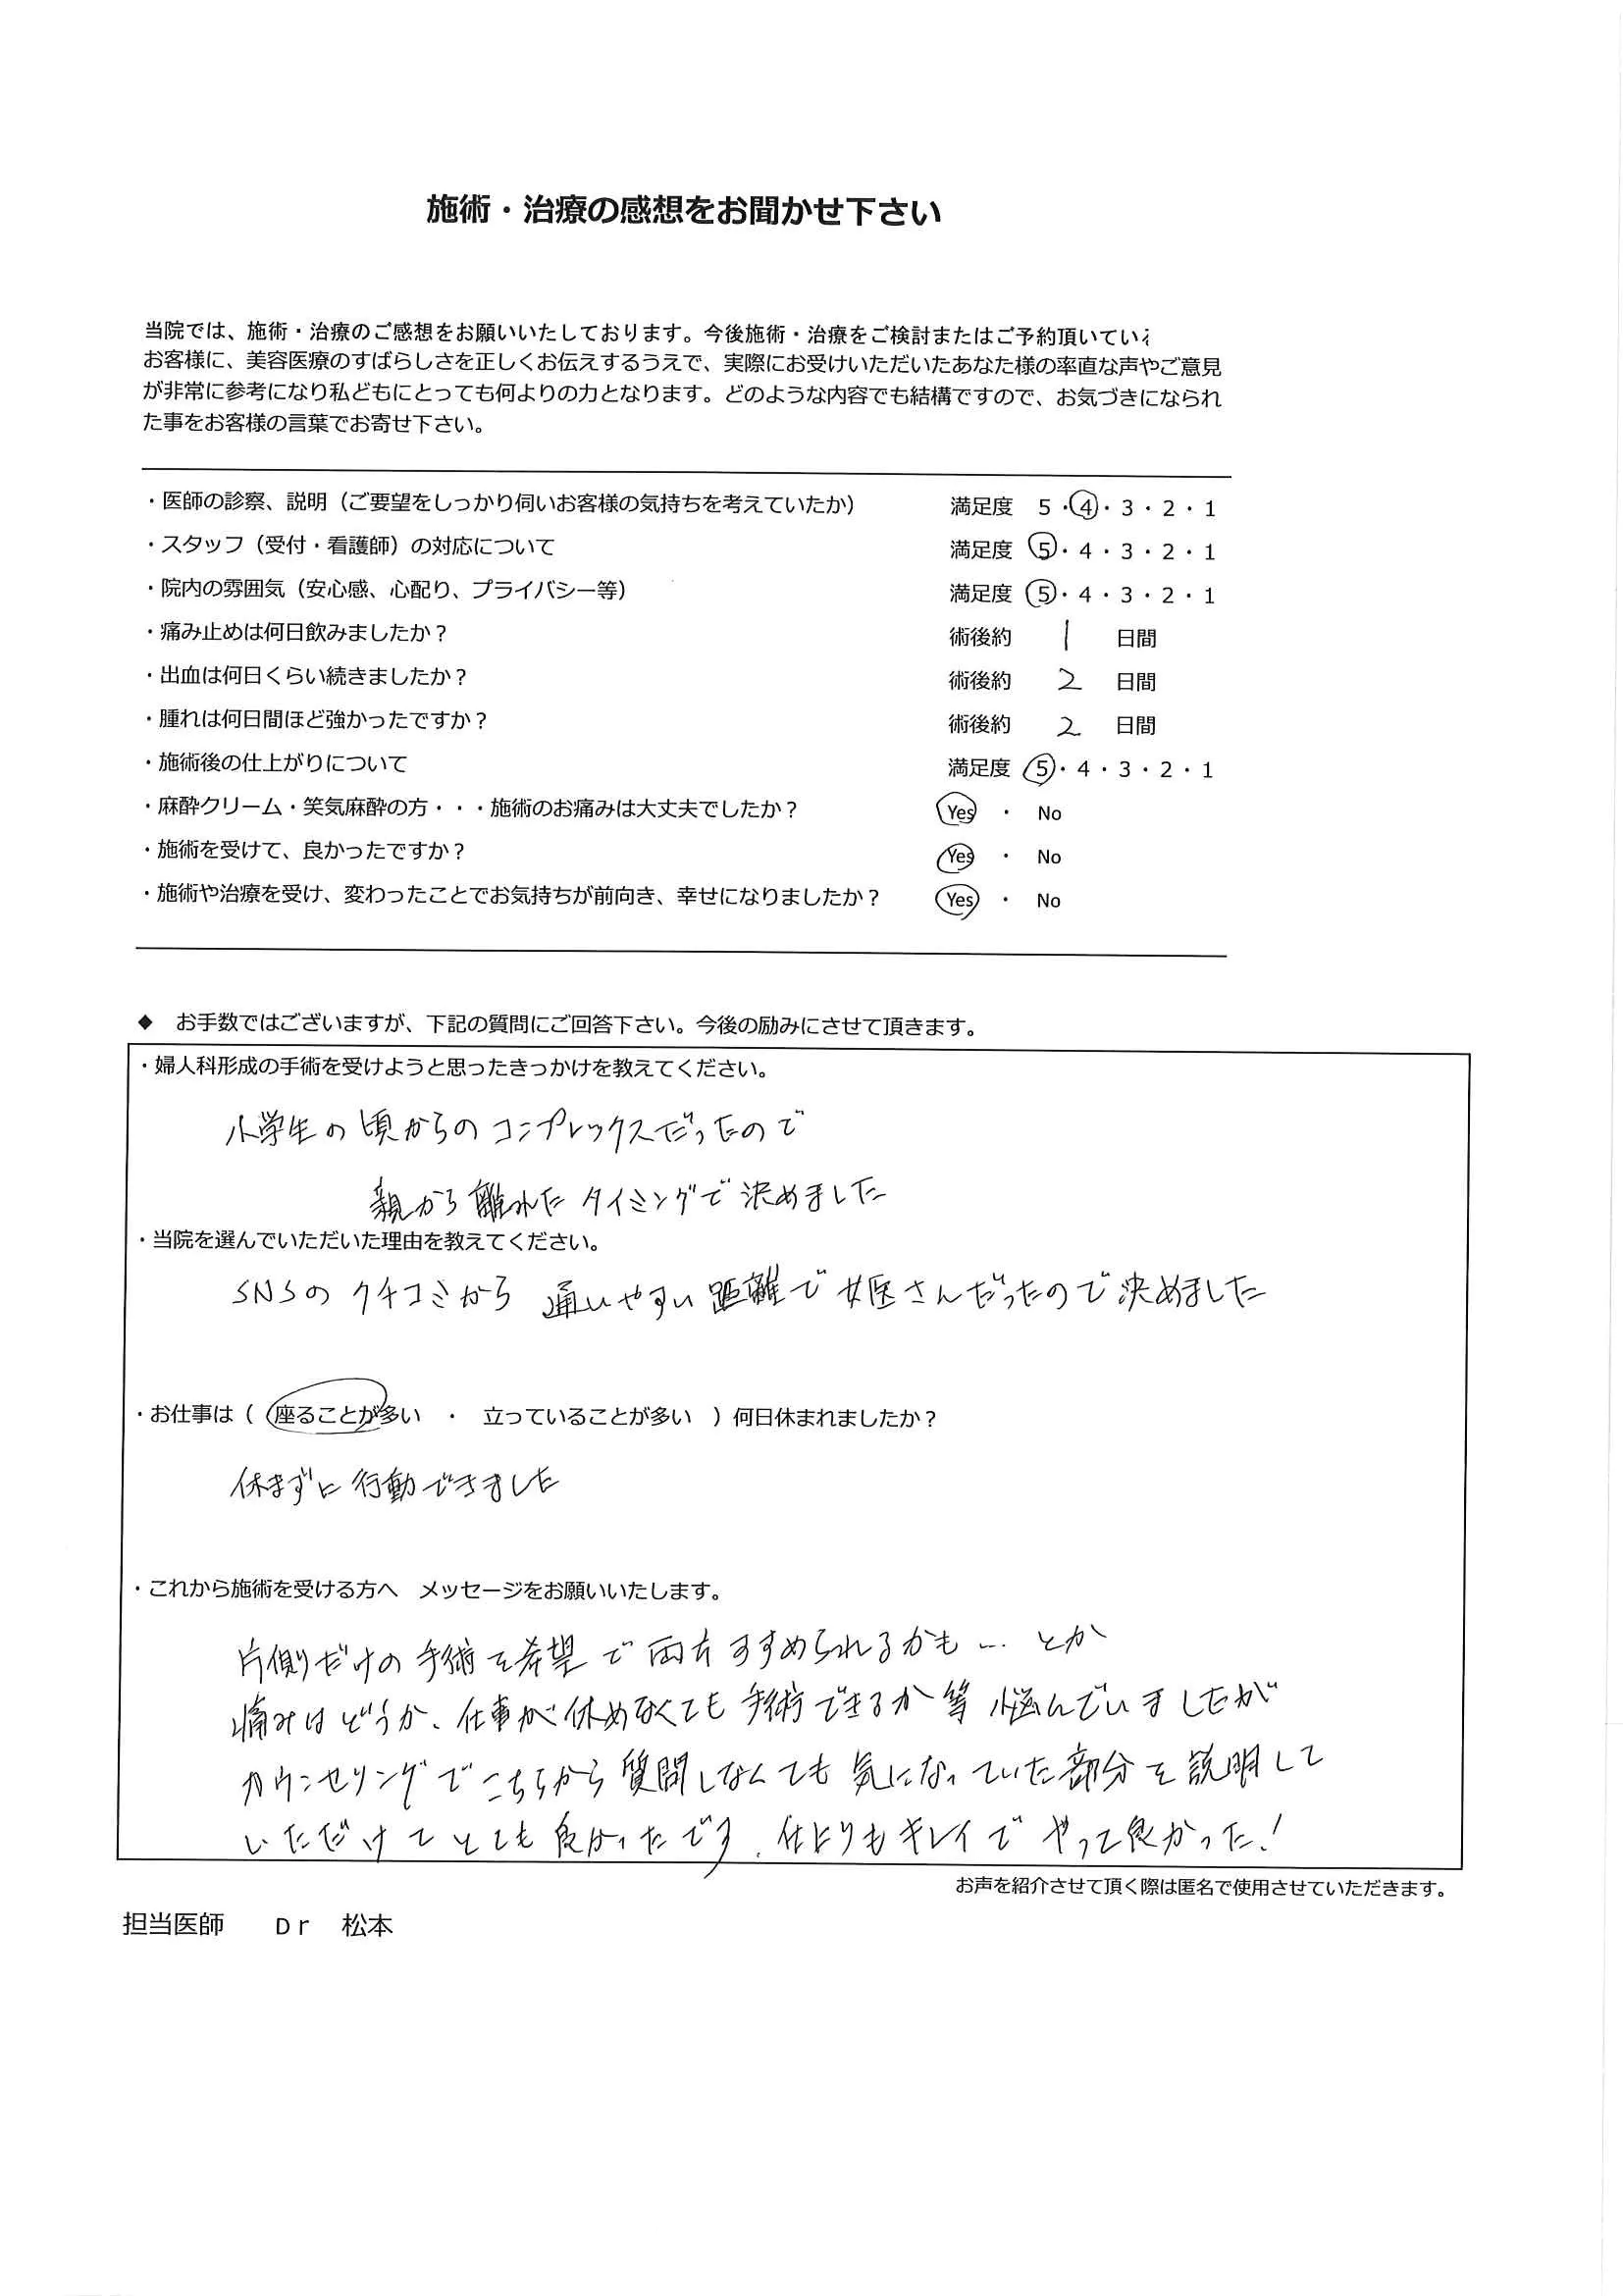 施術・治療の感想をお聞かせ下さい
当院では、施術・治療のご感想をお願いいたしております。今後施術・治療をご検討またはご予約頂いている
お客様に、美容医療のすばらしさを正しくお伝えするうえで、実際にお受けいただいたあなた様の率直な声やご意見
が非常に参考になり私どもにとっても何よりの力となります。どのような内容でも結構ですので、お気づきになられ
た事をお客様の言葉でお寄せ下さい。
・医師の診察、説明（ご要望をしっかり伺いお客様の気持ちを考えていたか） 満足度 5・4・3・2・1
・スタッフ（受付・看護師）の対応について 満足度 5・4・3・2・1
・院内の雰囲気（安心感、心配り、プライバシー等） 満足度 5・4・3・2・1
・痛み止めは何日飲みましたか？ 術後約 1 日間
・出血は何日くらい続きましたか？ 術後約 2 日間
・腫れは何日間ほど強かったですか？ 術後約 2 日間
・施術後の仕上がりについて 満足度 5・4・3・2・1
・麻酔クリーム・笑気麻酔の方・・・施術のお痛みは大丈夫でしたか？ Yes ・ No
・施術を受けて、良かったですか？ Yes ・ No
・施術や治療を受け、変わったことでお気持ちが前向き、幸せになりましたか？ Yes ・ No
◆ お手数ではございますが、下記の質問にご回答下さい。今後の励みにさせて頂きます。
・婦人科形成の手術を受けようと思ったきっかけを教えてください。
小学生の頃からのコンプレックスだったので
親から離れたタイミングで決めました
・当院を選んでいただいた理由を教えてください。
SNSのクチコミから 通いやすい距離で女医さんだったので決めました
・お仕事は（ 座ることが多い ・ 立っていることが多い ）何日休まれましたか？
休まずに行動できました
・これから施術を受ける方へ メッセージをお願いいたします。
片側だけの手術を希望で両方すすめられるかも… とか
痛みはどうか、仕事が休めなくても手術できるか等 悩んでいましたが
カウンセリングでこちらから質問しなくても気になっていた部分を説明して
いただけてとても良かったです。仕上りもキレイでやって良かった！
お声を紹介させて頂く際は匿名で使用させていただきます。
担当医師 Dr 松本